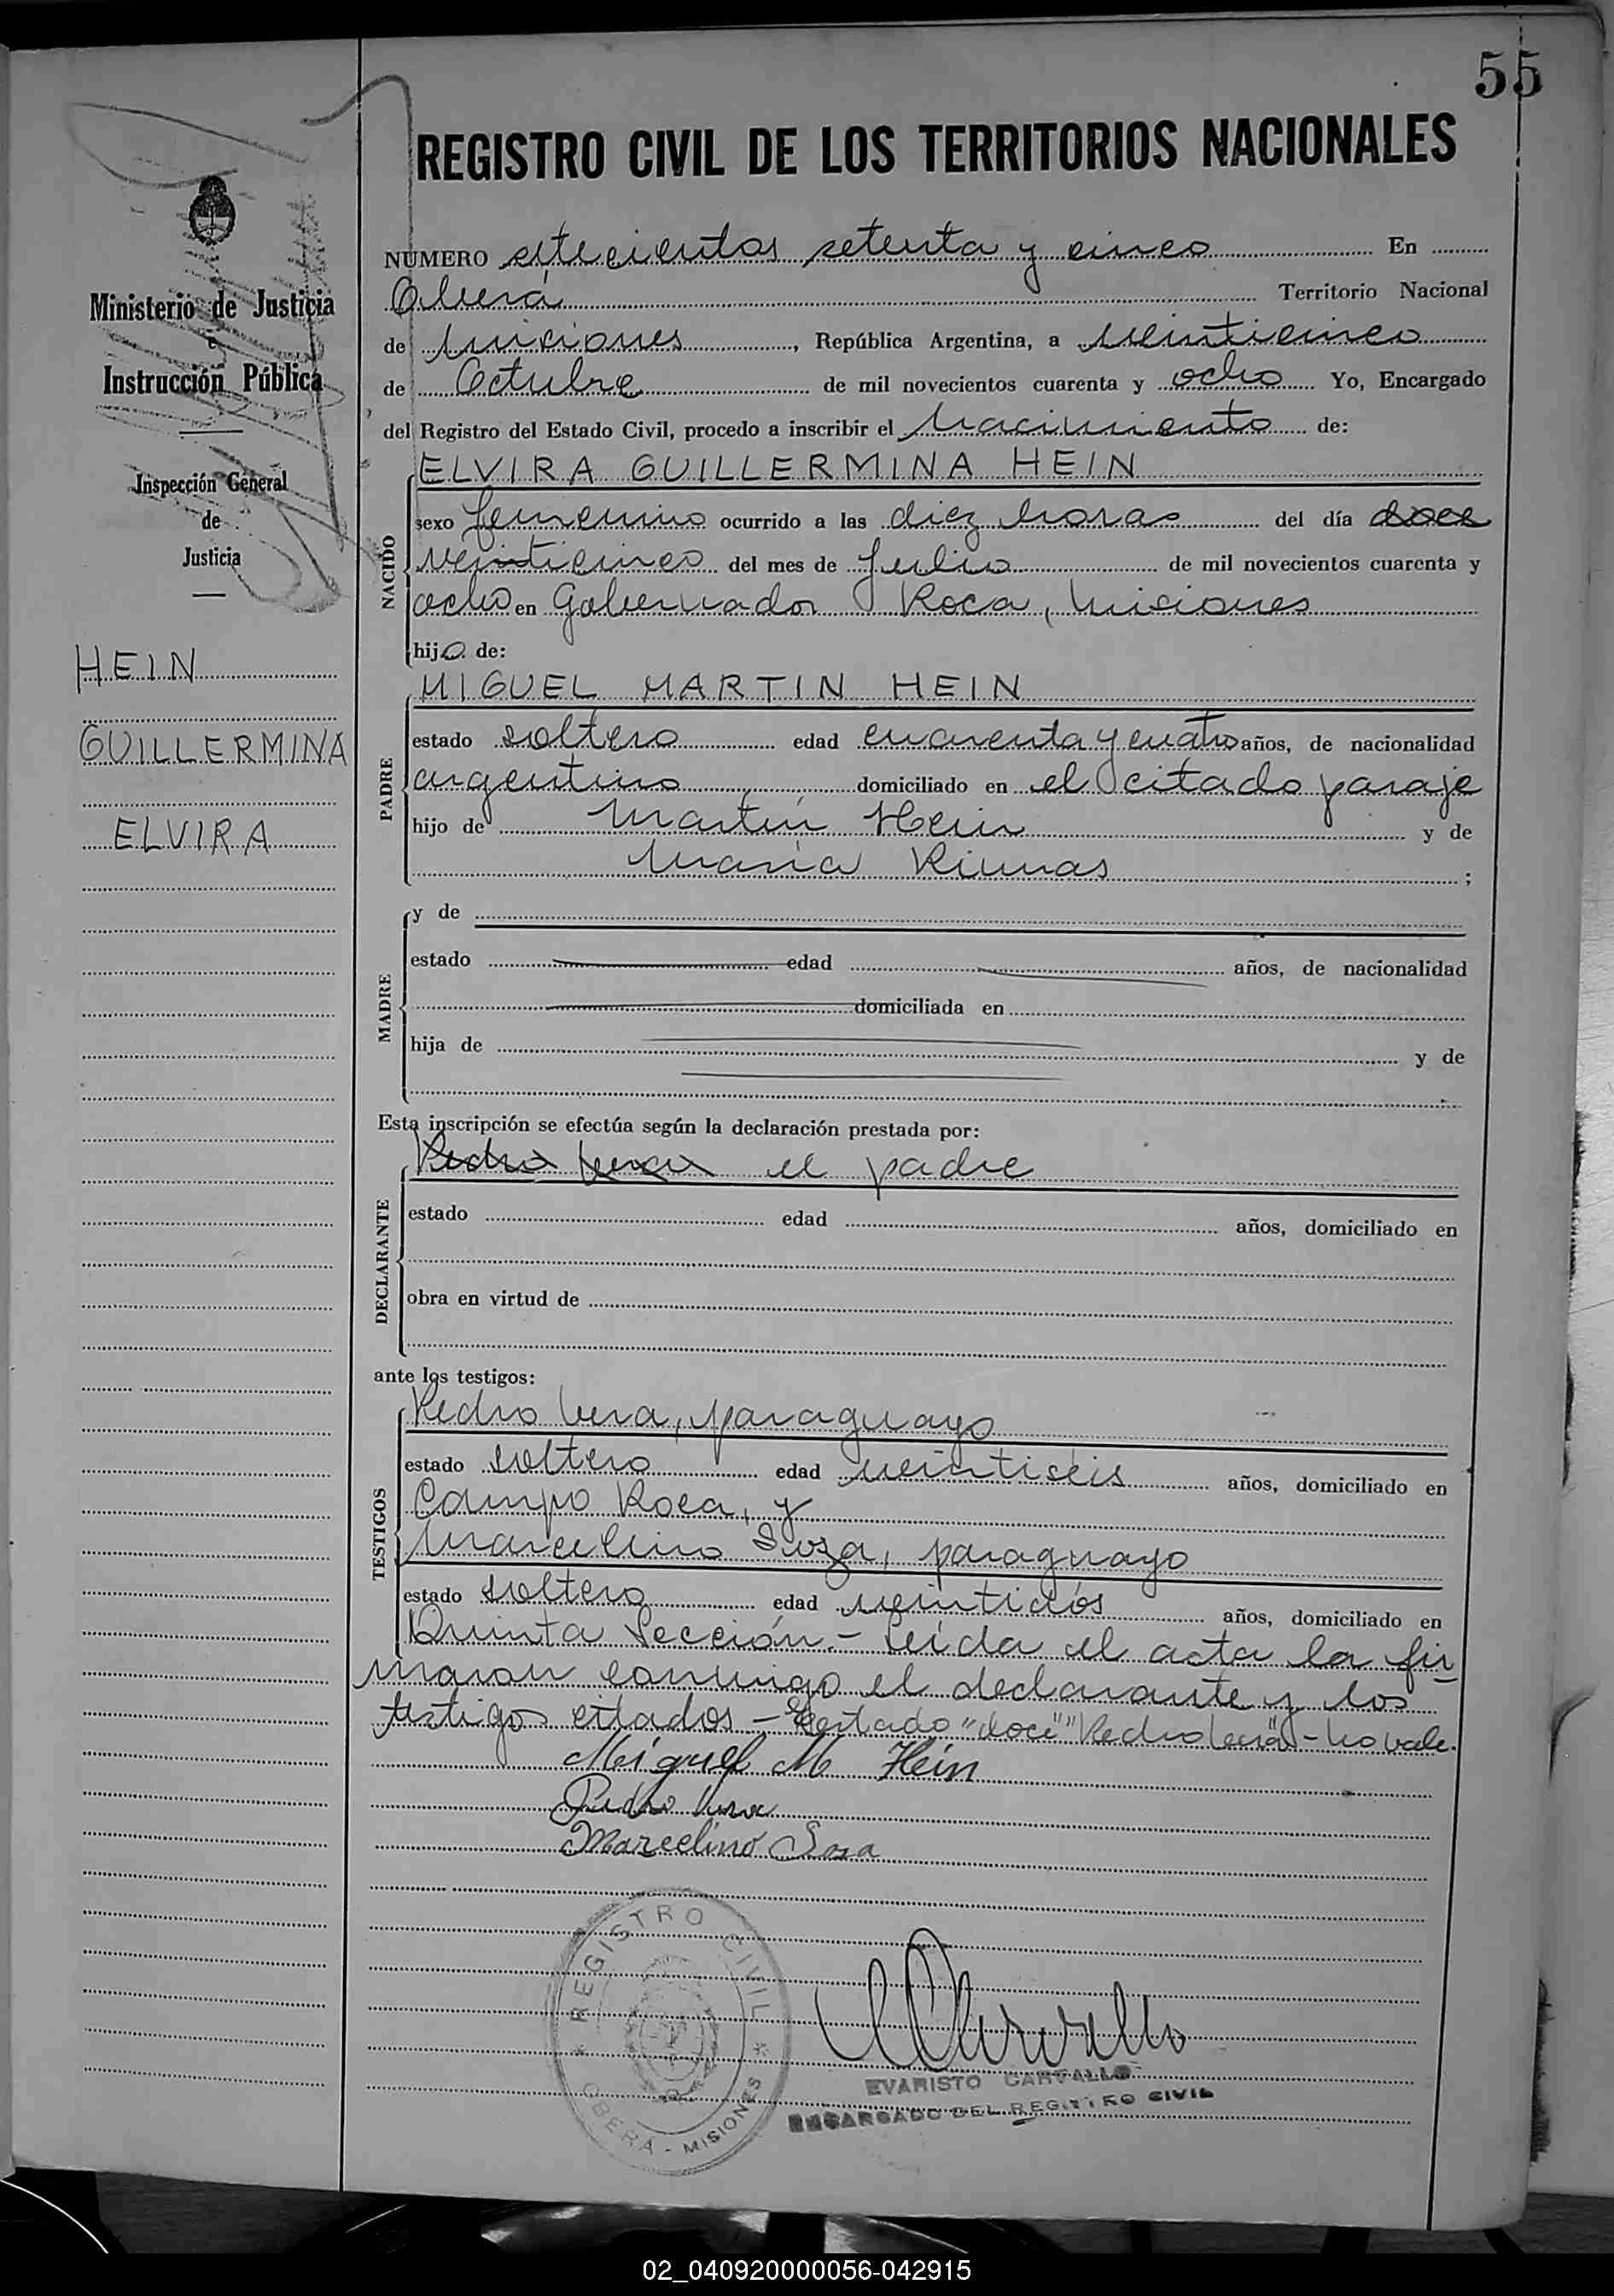 55
REGISTRO CIVIL DE LOS TERRITORIOS NACIONALES
Ministerio de Justicia
e
Instrucción Pública
Inspección General
de
Justicia
HEIN
GUILLERMINA
ELVIRA
NUMERO setecientos setenta y cinco En
Oberá Territorio Nacional
de Misiones, República Argentina, a veinticinco
de Octubre de mil novecientos cuarenta y ocho Yo, Encargado
del Registro del Estado Civil, procedo a inscribir el nacimiento de:
NACIDO
ELVIRA GUILLERMINA HEIN
sexo femenino ocurrido a las diez horas del día doce
veinticinco del mes de Julio de mil novecientos cuarenta y
ocho en Gobernador Roca, Misiones
hija de:
PADRE
MIGUEL MARTIN HEIN
estado soltero edad cuarenta y cuatro años, de nacionalidad
argentino domiciliado en el citado paraje
hijo de Martín Hein y de
María ;
MADRE
y de
estado edad años, de nacionalidad
domiciliada en
hija de y de
Esta inscripción se efectúa según la declaración prestada por:
DECLARANTE
Pedro Vera el padre
estado edad años, domiciliado en
obra en virtud de
ante los testigos:
TESTIGOS
Pedro Vera, paraguayo
estado soltero edad veintiseis años, domiciliado en
Campo Roca, y
Marcelino Sosa, paraguayo
estado soltero edad veintidós años, domiciliado en
Quinta Sección.- Leída el acta la fir
maron conmigo el declarante y los
testigos citados - Testado "doce" "Pedro Vera" - no vale.
Miguel M Hein
Pedro Vera
Marcelino Sosa
REGISTRO CIVIL
* OBERÁ - MISIONES *
EVARISTO CARVALLO
ENCARGADO DEL REGISTRO CIVIL
02_040920000056-042915